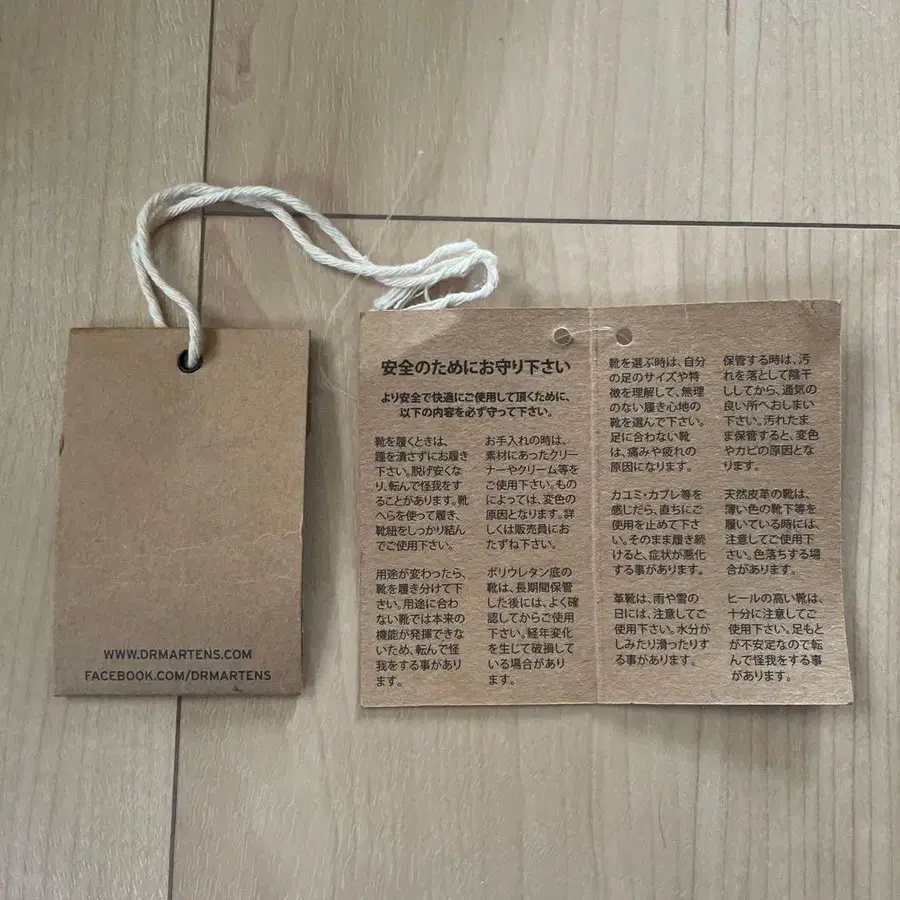 WWW.DRMARTENS.COM
FACEBOOK.COM/DRMARTENS
安全のためにお守り下さい
より安全で快適にご使用して頂くために、
以下の内容を必ず守って下さい。
靴を履くときは、
踵を潰さずにお履き
下さい。脱げ安くな
り、転んで怪我をす
ることがあります。靴
へらを使って履き、
靴紐をしっかり結ん
でご使用下さい。
用途が変わったら、
靴を履き分けて下
さい。用途に合わ
ない靴では本来の
機能が発揮できな
いため、転んで怪
我をする事があり
ます。
お手入れの時は、
素材にあったクリー
ナーやクリーム等を
ご使用下さい。もの
によっては、変色の
原因となります。詳
しくは販売員にお
たずね下さい。
ポリウレタン底の
靴は、長期間保管
した後には、よく確
認してからご使用
下さい。経年変化
を生じて破損して
いる場合があり
ます。
靴を選ぶ時は、自分
の足のサイズや特
徴を理解して、無理
のない履き心地の
靴を選んで下さい。
足に合わない靴
は、痛みや疲れの
原因になります。
カユミ・カブレ等を
感じたら、直ちにご
使用を止めて下さ
い。そのまま履き続
けると、症状が悪化
する事があります。
革靴は、雨や雪の
日には、注意してご
使用下さい。水分が
しみたり滑ったりす
る事があります。
保管する時は、汚
れを落として陰干
ししてから、通気の
良い所へおしまい
下さい。汚れたま
ま保管すると、変色
やカビの原因とな
ります。
天然皮革の靴は、
薄い色の靴下等を
履いている時には、
注意してご使用下
さい。色落ちする場
合があります。
ヒールの高い靴は、
十分に注意してご
使用下さい。足もと
が不安定なので転
んで怪我をする事
があります。